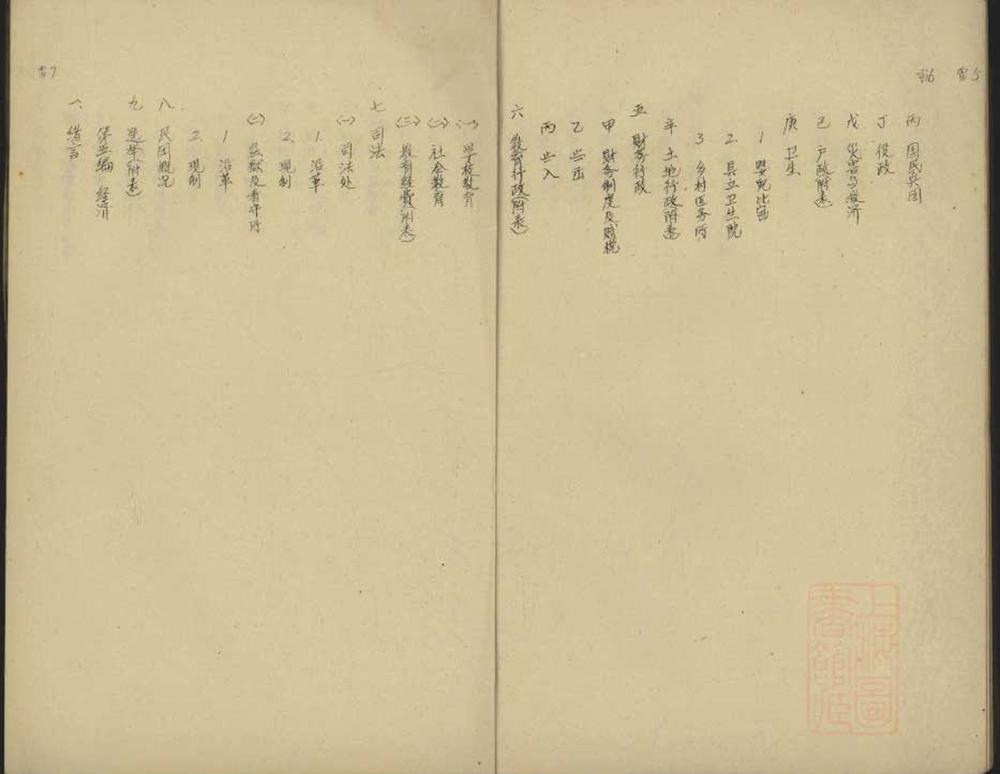 丙 国民兵团
丁 役政
戊 灾害与救济
己 户政(附表)
庚 卫生
1 婴儿比率
2. 县立卫生院
3 乡村医务所
辛 土地行政(附表)
五 财务行政
甲 财务制度及赋税
乙 岁出
丙 岁入
六 教育行政(附表)
(一) 学校教育
(二) 社会教育
(三) 教育经费(附表)
七 司法
(一) 司法处
1. 沿革
2. 现制
(二) 监狱及看守所
1 沿革
2. 现制
八 民团概况
九 选举(附表)
第五编 经济
一、绪言